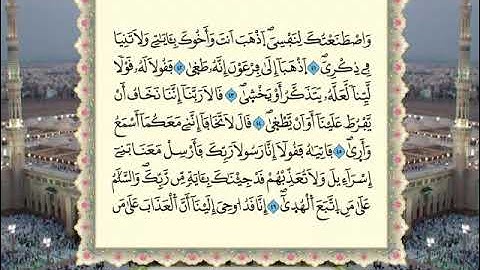 وَاصْطَنَعْتُكَ لِنَفْسِيۖ اَ۪ذْهَبَ اَنتَ وَأَخُوكَ بِـَٔايَٰتِے وَلَا تَنِيَا
فِے ذِكْرِيۖ ٤١ اَ۪ذْهَبَآ إِلَىٰ فِرْعَوْنَ إِنَّهُۥ طَغَىٰۖ ٤٢ فَقُولَا لَهُۥ قَوْلاٗ
لَّيِّناٗ لَّعَلَّهُۥ يَتَذَكَّرُ أَوْ يَخْش۪ىٰۖ ٤٣ قَالَا رَبَّنَآ إِنَّنَا نَخَافُ أَنْ
يَّفْرُطَ عَلَيْنَآ أَوْ أَنْ يَّطْغ۪ىٰۖ ٤٤ قَالَ لَا تَخَافَآ إِنَّنِے مَعَكُمَآ أَسْمَعُ
وَأَر۪ىٰۖ ٤٥ فَاتِيَٰهُ فَقُولَآ إِنَّا رَسُولَا رَبِّكَ فَأَرْسِلْ مَعَنَا بَنِےٓ
إِسْرَآءِيلَ وَلَا تُعَذِّبْهُمْ قَدْ جِئْنَٰكَ بِـَٔايَةٖ مِّن رَّبِّكَۖ وَالسَّلَٰمُ
عَلَىٰ مَنِ اِ۪تَّبَعَ اَ۬لْهُد۪ىٰٓۖ ٤٦ إِنَّا قَدُ ا۟وحِيَ إِلَيْنَآ أَنَّ اَ۬لْعَذَابَ عَلَىٰ مَن